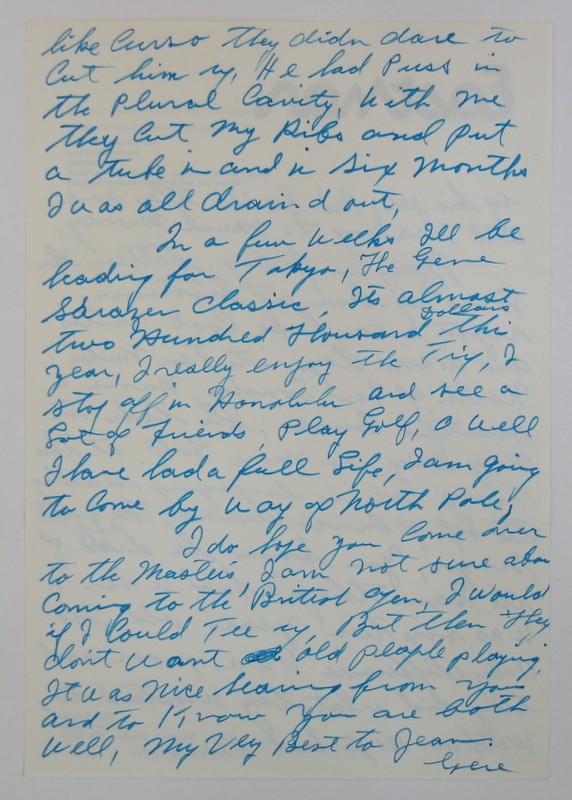 like Curso they didn dare to
Cut him up, He had Puss in
the Plural Cavity, With me
they Cut My Ribs and put
a tube in and in Six Months
I was all draind out,
In a few Weeks Ill be
heading for Tokyo, The Gene
Sarazen Classic, Its almost
Dollars
two Hundred Thousard this
year, I really enjoy the Trip, I
stop off in Honolulu and see a
Lot of friends, Play Golf, O well
I have had a full Life, I am going
to Come by way of North Pole,
I do hope you Come over
to the Masters, I am not sure about
Coming to the British Open, I would
if I Could Tee up, But then they
don't want old people playing,
It was Nice hearing from you
and to Know you are both
Well, My Very Best to Jean.
Gene